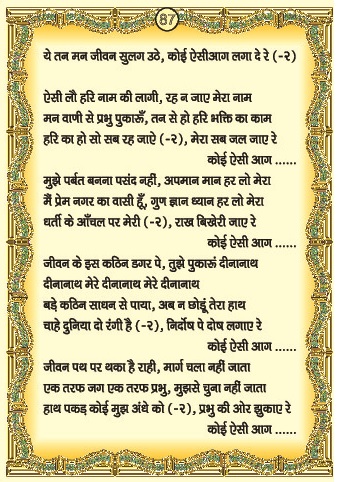 87
ये तन मन जीवन सुलग उठे, कोई ऐसीआग लगा दे रे (-२)
ऐसी लौ हरि नाम की लागी, रह न जाए मेरा नाम
मन वाणी से प्रभु पुकारूँ, तन से हो हरि भक्ति का काम
हरि का हो सो सब रह जाऐ (-२), मेरा सब जल जाए रे
कोई ऐसी आग ......
मुझे पर्बत बनना पसंद नहीं, अपमान मान हर लो मेरा
मैं प्रेम नगर का वासी हूँ, गुण ज्ञान ध्यान हर लो मेरा
धर्ती के आँचल पर मेरी (-२), राख बिखेरी जाए रे
कोई ऐसी आग ......
जीवन के इस कठिन डगर पे, तुझे पुकारूं दीनानाथ
दीनानाथ मेरे दीनानाथ मेरे दीनानाथ
बड़े कठिन साधन से पाया, अब न छोडूं तेरा हाथ
चाहे दुनिया दो रंगी है (-२), निर्दोष पे दोष लगाए रे
कोई ऐसी आग ......
जीवन पथ पर थका है राही, मार्ग चला नहीं जाता
एक तरफ जग एक तरफ प्रभु, मुझसे चुना नहीं जाता
हाथ पकड़ कोई मुझ अंधे को (-२), प्रभु की ओर झुकाए रे
कोई ऐसी आग ......